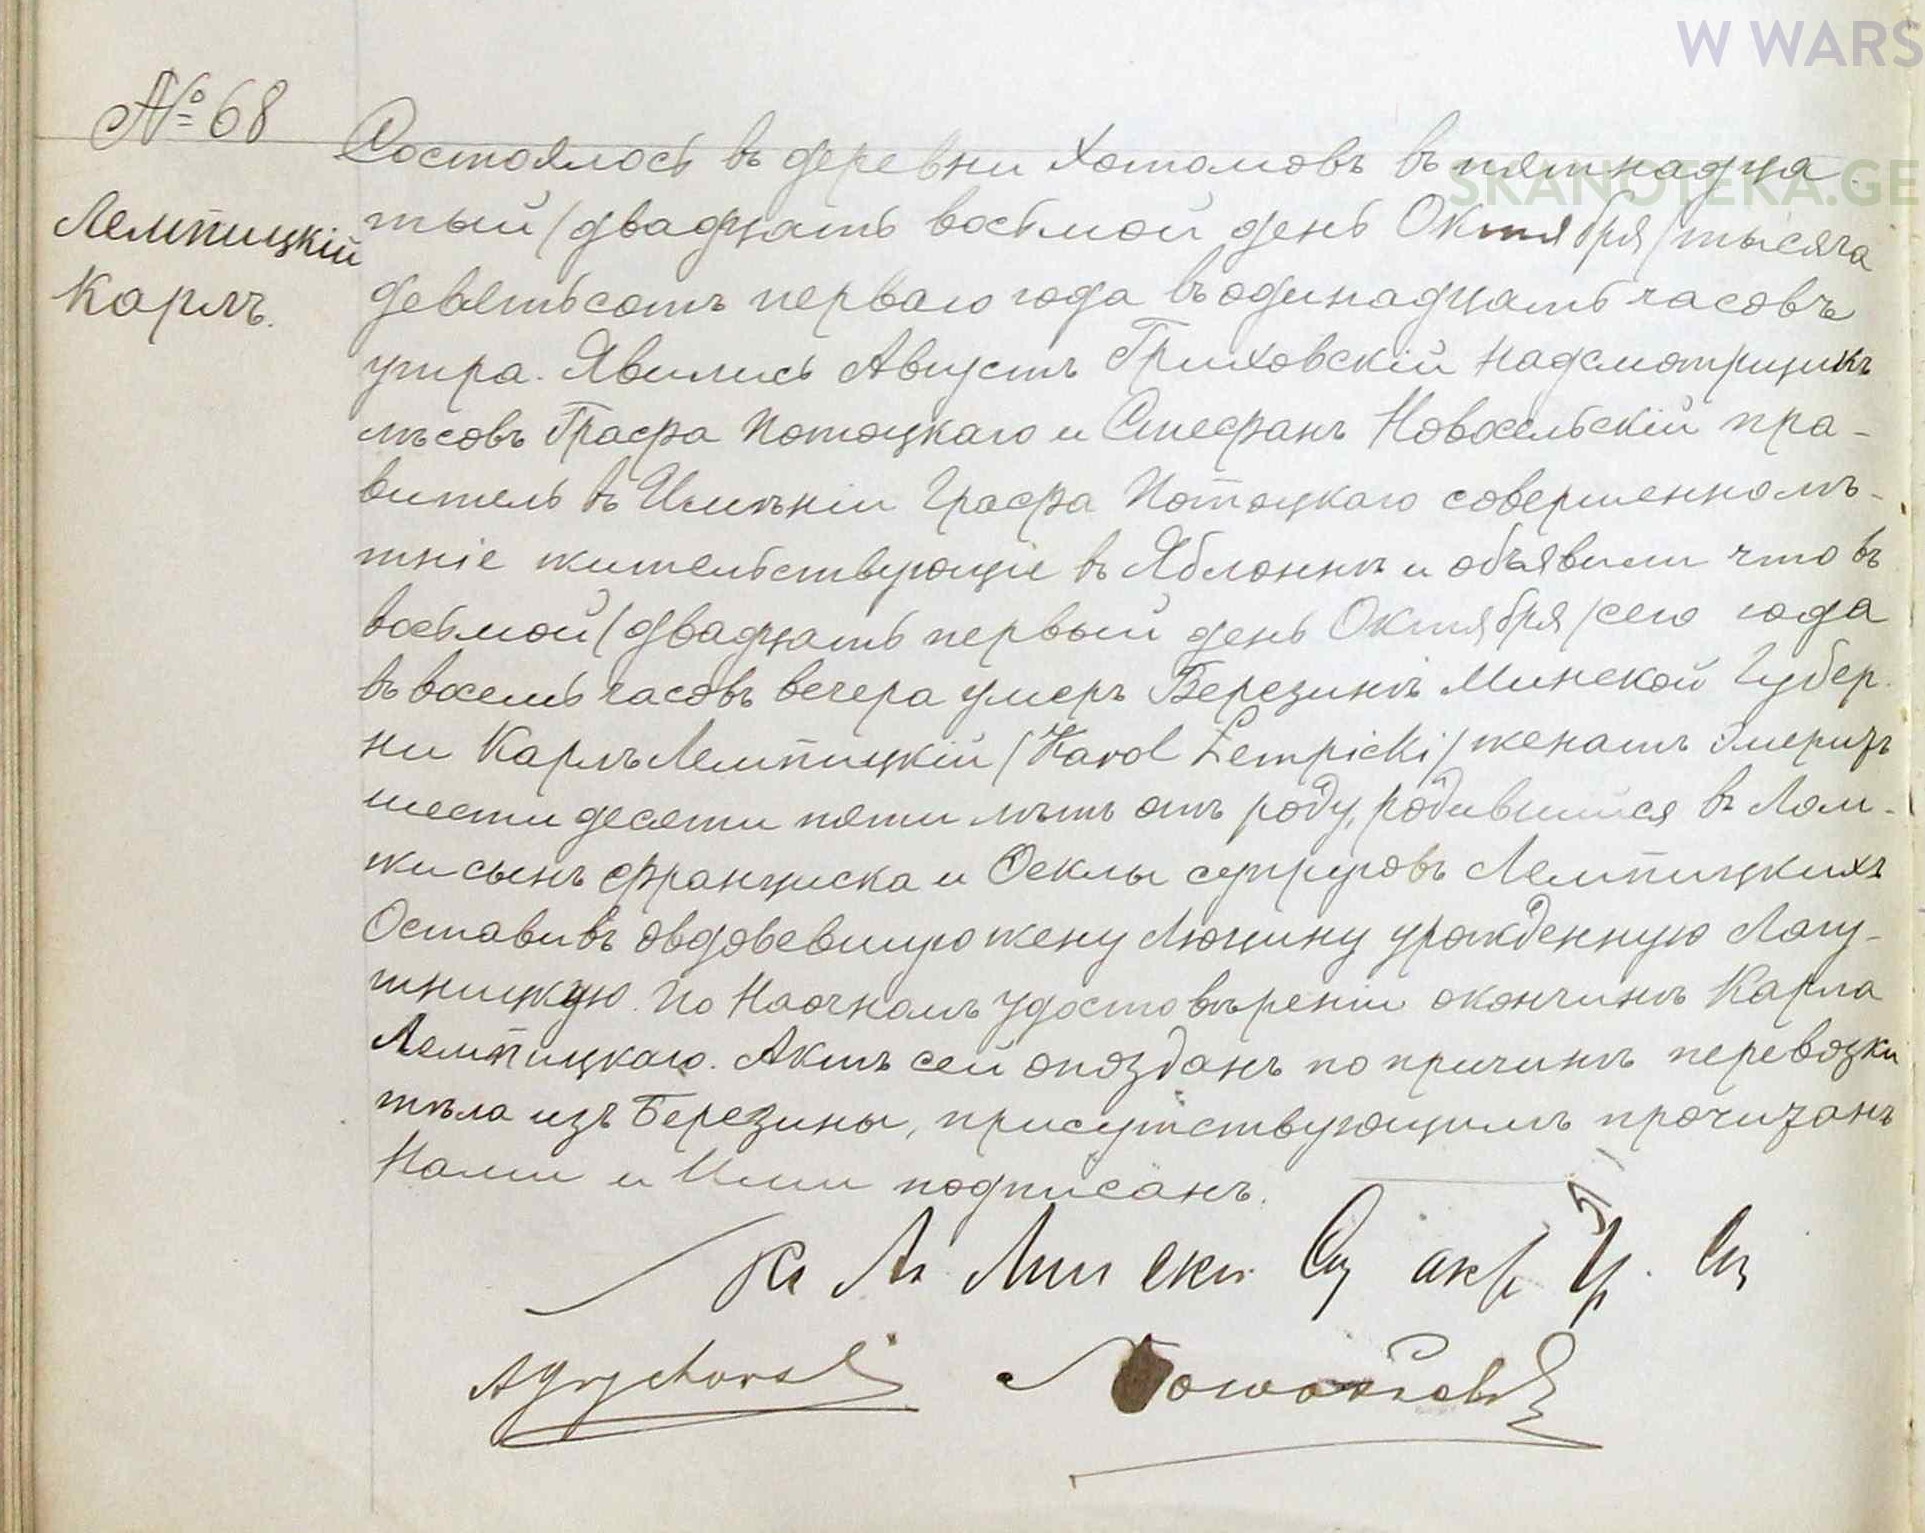 W WARS
SKANOTEKA.GE
№ 68
Лемпицкій
Карлъ.
Состоялось въ деревни Хотомовъ въ пятнадца
тый / двадцать восьмой день Октября / тысяча
девятьсотъ перваго года въ одинадцать часовъ
утра. Явились Августъ Гриховскій надсмотрщикъ
лѣсовъ Графа Потоцкаго и Стефанъ Новосельскій пра-
витель въ Имѣніи Графа Потоцкаго совершеннолѣ-
тніе жительствующіе въ Яблоннѣ и объявили что въ
восьмой / двадцать первый день Октября / сего года
въ восемь часовъ вечера умеръ Березинѣ Минской Губер.
ни Карлъ Лемпицкій / Karol Lempicki / женатъ
шести десяти пяти лѣтъ отъ роду, родившійся въ Лом-
жи сынъ Франциска и Феклы супруговъ Лемпицкихъ
Оставивъ овдовевшую жену Люцину урожденную Лагу-
тницкую. По Наочномъ удостовѣреніи окончинѣ Карла
Лемпицкаго. Актъ сей опозданъ по причинѣ перевозки
тѣла изъ Березины, присутствующимъ прочитанъ
Нами и Ими подписанъ.